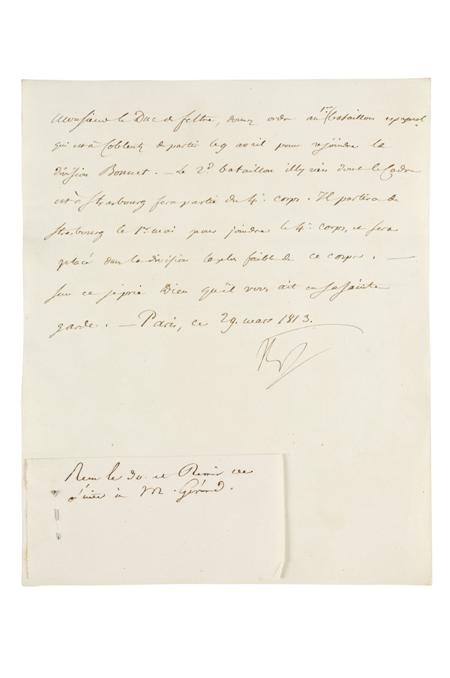 Monsieur le Duc de feltre, donnez ordre au 1er bataillon espagnol
qui est à Coblentz de partir le 9 avril pour rejoindre la
division Bonnet. - Le 2d bataillon illyrien dont le Cadre
est à Strasbourg fera partie du 4e corps. Il partira de
Strasbourg le 1er mai pour joindre le 4e corps, et sera
placé dans la division la plus faible de ce corps. —
Sur ce je prie Dieu qu'il vous ait en sa sainte
garde. - Paris, ce 29. mars 1813.
Reçu le 30. et Remis de
suite à Mr. Gérard.